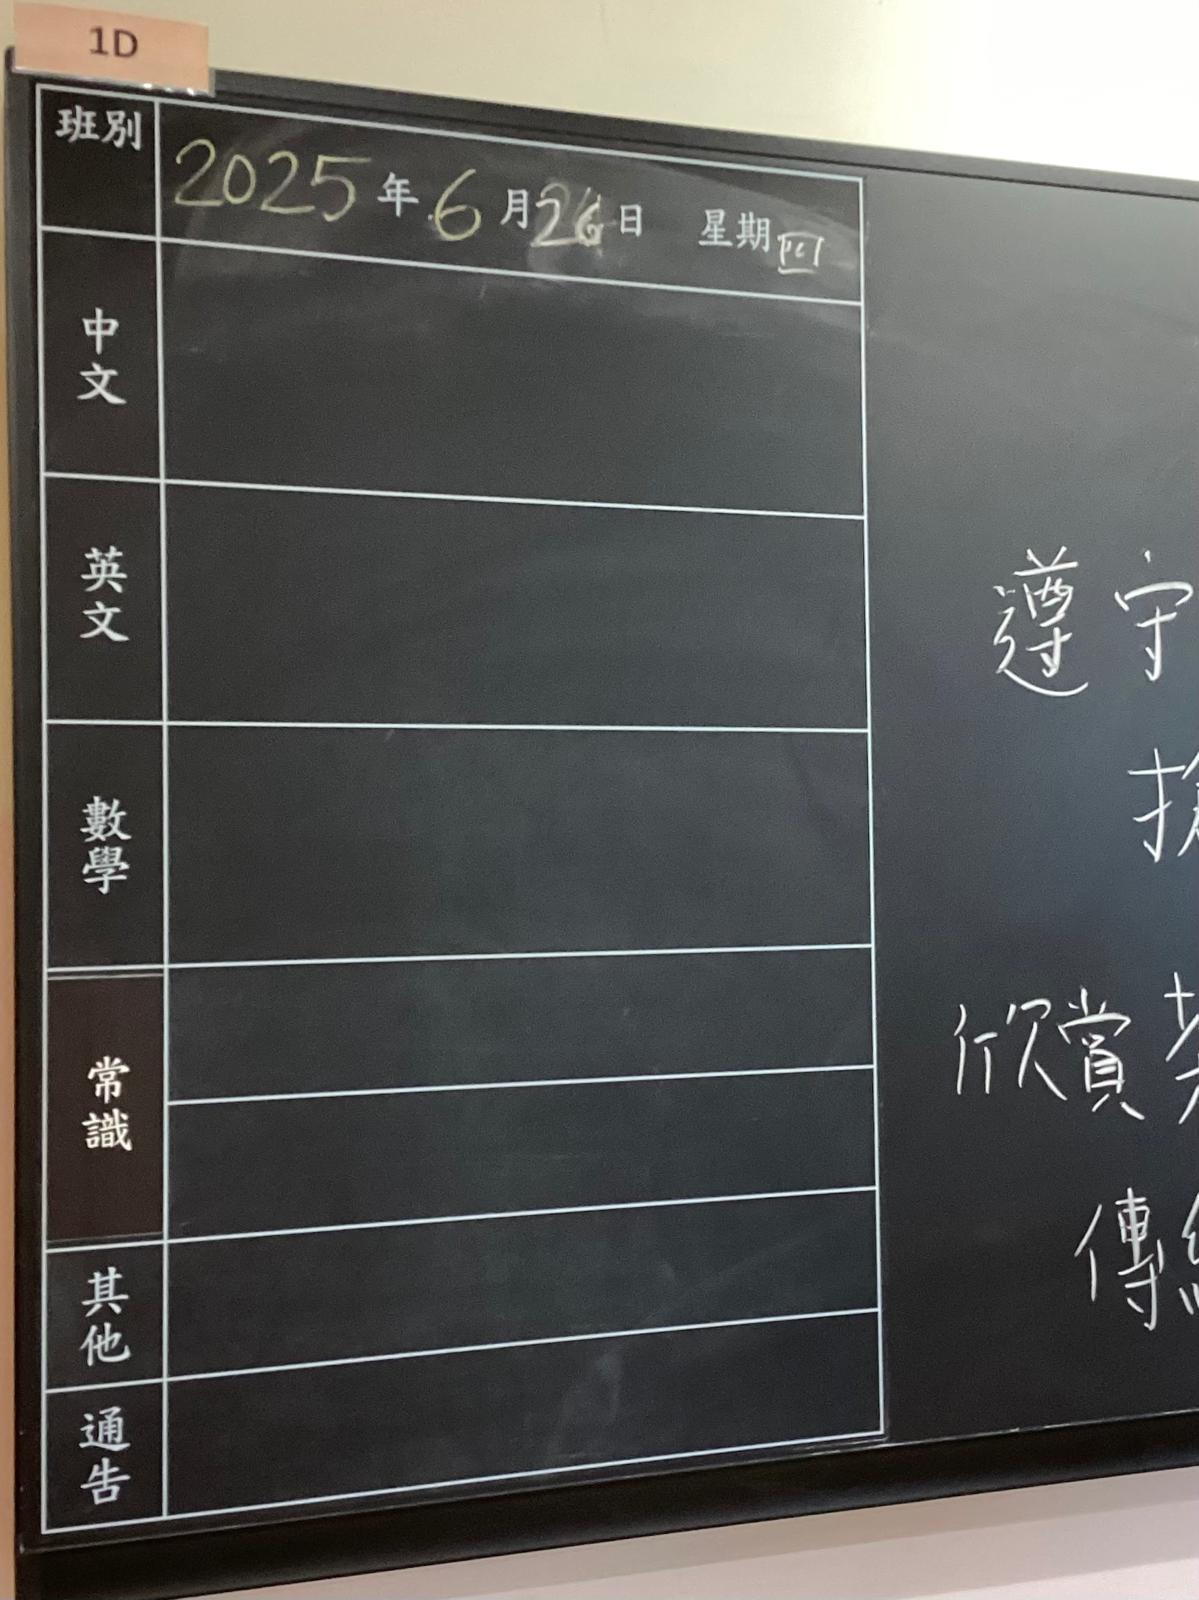 1D
班別
2025年6月26日 星期四
中文
英文
數學
常識
其他
通告
遵守
欣賞
傳